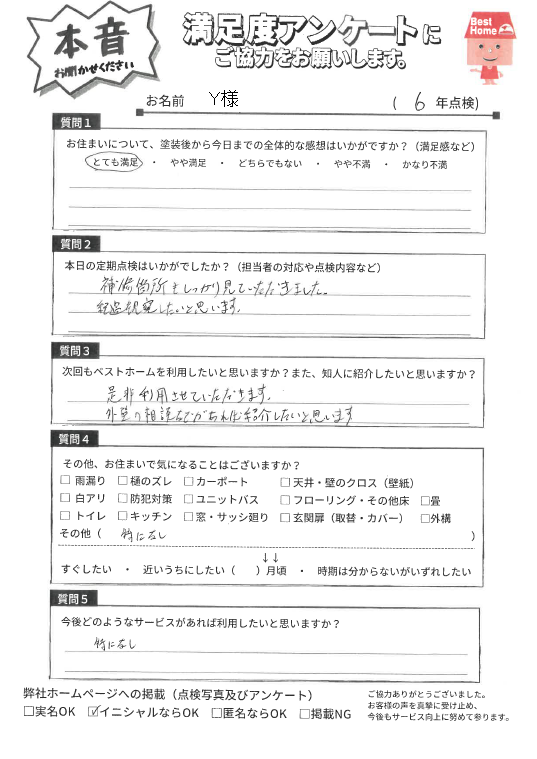 本音
お聞かせください
満足度アンケートに
ご協力をお願いします。
Best
Home
お名前 Y様 ( 6 年点検)
質問1
お住まいについて、塗装後から今日までの全体的な感想はいかがですか？（満足感など）
とても満足 ・ やや満足 ・ どちらでもない ・ やや不満 ・ かなり不満
質問2
本日の定期点検はいかがでしたか？（担当者の対応や点検内容など）
補修箇所をしっかり見ていただきました。
経過観察したいと思います。
質問3
次回もベストホームを利用したいと思いますか？また、知人に紹介したいと思いますか？
是非利用させていただきます。
外壁の相談などがあれば紹介したいと思います
質問4
その他、お住まいで気になることはございますか？
□ 雨漏り □ 樋のズレ □ カーポート □ 天井・壁のクロス（壁紙）
□ 白アリ □ 防犯対策 □ ユニットバス □ フローリング・その他床 □畳
□ トイレ □ キッチン □ 窓・サッシ廻り □ 玄関扉（取替・カバー） □外構
その他（ 特になし ）
↓↓
すぐしたい ・ 近いうちにしたい（ ）月頃 ・ 時期は分からないがいずれしたい
質問5
今後どのようなサービスがあれば利用したいと思いますか？
特になし
弊社ホームページへの掲載（点検写真及びアンケート）
□実名OK ☑イニシャルならOK □匿名ならOK □掲載NG
ご協力ありがとうございました。
お客様の声を真摯に受け止め、
今後もサービス向上に努めて参ります。